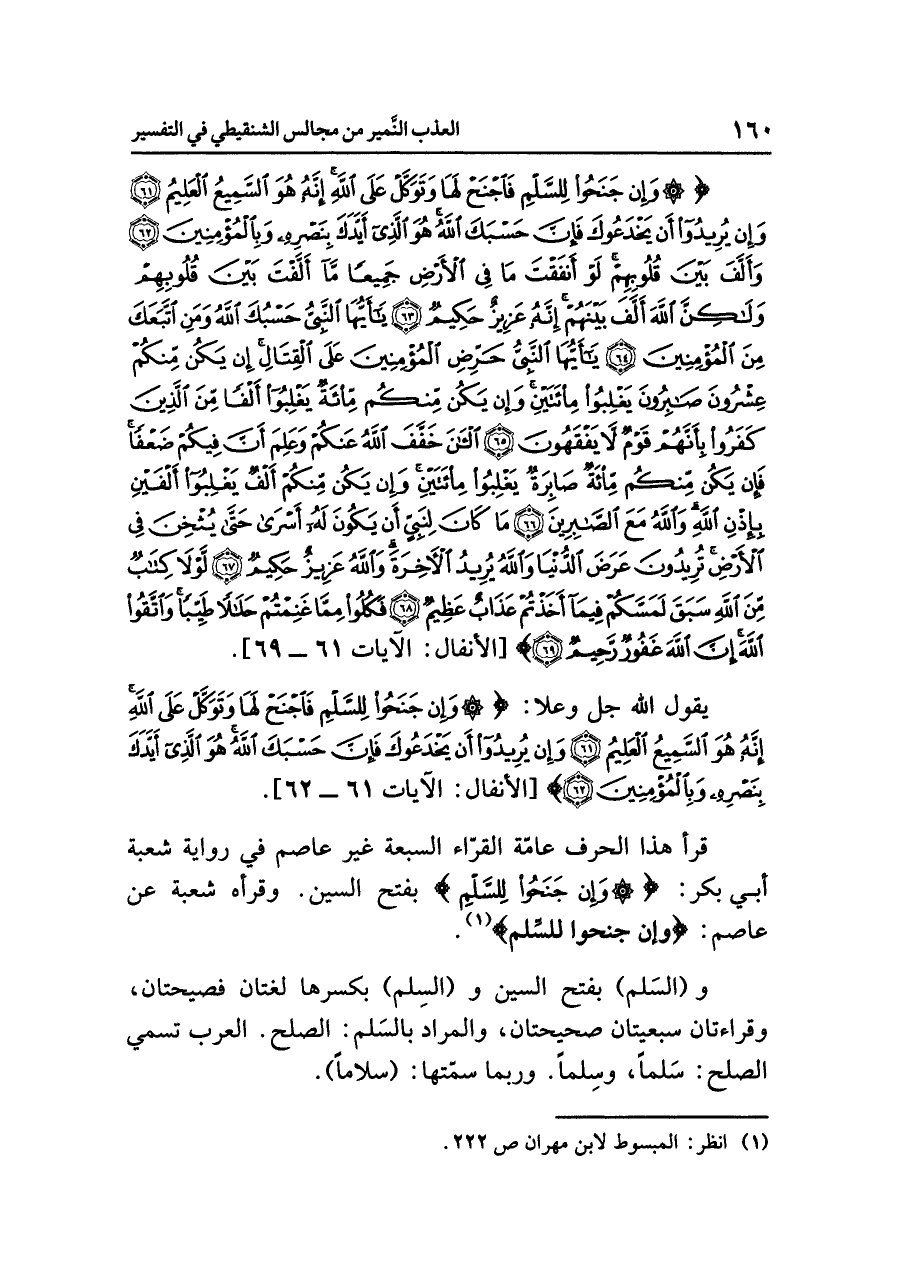 ١٦٠ العذب النَّمير من مجالس الشنقيطي في التفسير
﴿ ۞ وَإِن جَنَحُوا۟ لِلسَّلْمِ فَٱجْنَحْ لَهَا وَتَوَكَّلْ عَلَى ٱللَّهِ ۚ إِنَّهُۥ هُوَ ٱلسَّمِيعُ ٱلْعَلِيمُ ٦١
وَإِن يُرِيدُوٓا۟ أَن يَخْدَعُوكَ فَإِنَّ حَسْبَكَ ٱللَّهُ ۚ هُوَ ٱلَّذِىٓ أَيَّدَكَ بِنَصْرِهِۦ وَبِٱلْمُؤْمِنِينَ ٦٢
وَأَلَّفَ بَيْنَ قُلُوبِهِمْ ۚ لَوْ أَنفَقْتَ مَا فِى ٱلْأَرْضِ جَمِيعًا مَّآ أَلَّفْتَ بَيْنَ قُلُوبِهِمْ
وَلَـٰكِنَّ ٱللَّهَ أَلَّفَ بَيْنَهُمْ ۚ إِنَّهُۥ عَزِيزٌ حَكِيمٌ ٦٣ يَـٰٓأَيُّهَا ٱلنَّبِىُّ حَسْبُكَ ٱللَّهُ وَمَنِ ٱتَّبَعَكَ
مِنَ ٱلْمُؤْمِنِينَ ٦٤ يَـٰٓأَيُّهَا ٱلنَّبِىُّ حَرِّضِ ٱلْمُؤْمِنِينَ عَلَى ٱلْقِتَالِ ۚ إِن يَكُن مِّنكُمْ
عِشْرُونَ صَـٰبِرُونَ يَغْلِبُوا۟ مِا۟ئَتَيْنِ ۚ وَإِن يَكُن مِّنكُم مِّا۟ئَةٌ يَغْلِبُوٓا۟ أَلْفًا مِّنَ ٱلَّذِينَ
كَفَرُوا۟ بِأَنَّهُمْ قَوْمٌ لَّا يَفْقَهُونَ ٦٥ ٱلْـَٔـٰنَ خَفَّفَ ٱللَّهُ عَنكُمْ وَعَلِمَ أَنَّ فِيكُمْ ضَعْفًا ۚ
فَإِن يَكُن مِّنكُم مِّا۟ئَةٌ صَابِرَةٌ يَغْلِبُوا۟ مِا۟ئَتَيْنِ ۚ وَإِن يَكُن مِّنكُمْ أَلْفٌ يَغْلِبُوٓا۟ أَلْفَيْنِ
بِإِذْنِ ٱللَّهِ ۗ وَٱللَّهُ مَعَ ٱلصَّـٰبِرِينَ ٦٦ مَا كَانَ لِنَبِىٍّ أَن يَكُونَ لَهُۥٓ أَسْرَىٰ حَتَّىٰ يُثْخِنَ فِى
ٱلْأَرْضِ ۚ تُرِيدُونَ عَرَضَ ٱلدُّنْيَا وَٱللَّهُ يُرِيدُ ٱلْـَٔاخِرَةَ ۗ وَٱللَّهُ عَزِيزٌ حَكِيمٌ ٦٧ لَّوْلَا كِتَـٰبٌ
مِّنَ ٱللَّهِ سَبَقَ لَمَسَّكُمْ فِيمَآ أَخَذْتُمْ عَذَابٌ عَظِيمٌ ٦٨ فَكُلُوا۟ مِمَّا غَنِمْتُمْ حَلَـٰلًا طَيِّبًا ۚ وَٱتَّقُوا۟
ٱللَّهَ ۚ إِنَّ ٱللَّهَ غَفُورٌ رَّحِيمٌ ٦٩ ﴾ [الأنفال: الآيات ٦١ ــ ٦٩].
يقول الله جل وعلا: ﴿ ۞ وَإِن جَنَحُوا۟ لِلسَّلْمِ فَٱجْنَحْ لَهَا وَتَوَكَّلْ عَلَى ٱللَّهِ ۚ
إِنَّهُۥ هُوَ ٱلسَّمِيعُ ٱلْعَلِيمُ ٦١ وَإِن يُرِيدُوٓا۟ أَن يَخْدَعُوكَ فَإِنَّ حَسْبَكَ ٱللَّهُ ۚ هُوَ ٱلَّذِىٓ أَيَّدَكَ
بِنَصْرِهِۦ وَبِٱلْمُؤْمِنِينَ ٦٢ ﴾ [الأنفال: الآيات ٦١ ــ ٦٢].
قرأ هذا الحرف عامّة القرّاء السبعة غير عاصم في رواية شعبة
أبي بكر: ﴿ ۞ وَإِن جَنَحُوا۟ لِلسَّلْمِ ﴾ بفتح السين. وقرأه شعبة عن
عاصم: ﴿وإن جنحوا للسِّلم﴾(١).
و (السَلم) بفتح السين و (السِلم) بكسرها لغتان فصيحتان،
وقراءتان سبعيتان صحيحتان، والمراد بالسَلم: الصلح. العرب تسمي
الصلح: سَلماً، وسِلماً. وربما سمّتها: (سلاماً).
(١) انظر: المبسوط لابن مهران ص ٢٢٢.